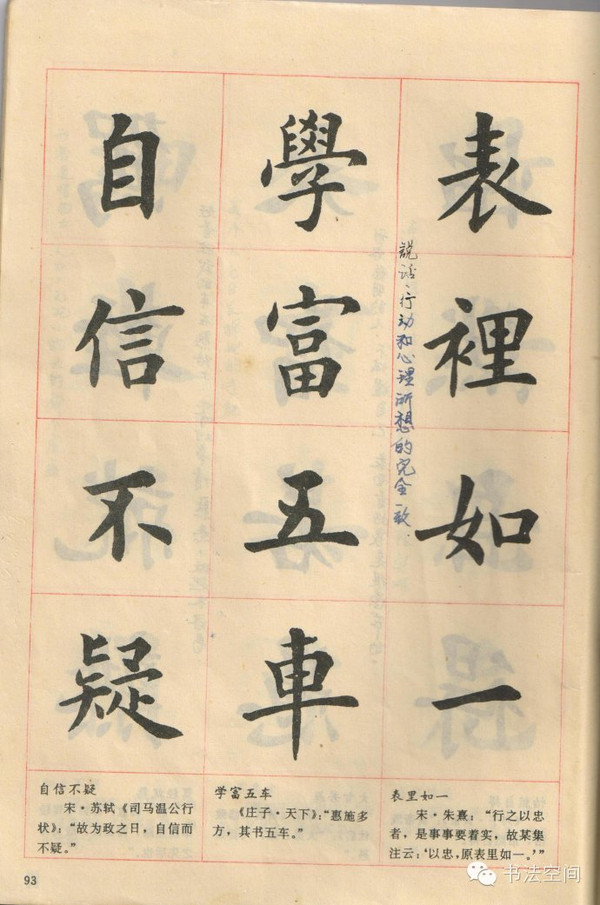 表裡如一
說话、行动和心理所想的完全一致.
學富五車
自信不疑
自信不疑
宋·苏轼《司马温公行
状》：“故为政之日，自信而
不疑。”
学富五车
《庄子·天下》：“惠施多
方，其书五车。”
表里如一
宋·朱熹：“行之以忠
者，是事事要着实，故某集
注云：‘以忠，原表里如一。’”
93
书法空间